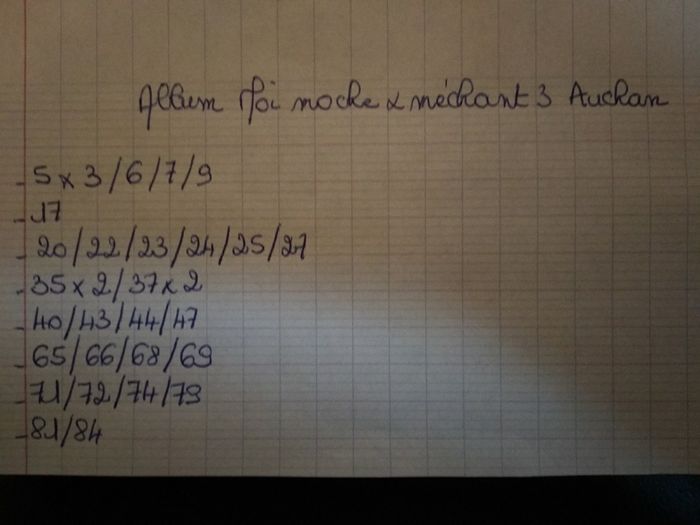 Album Moi moche & méchant 3 Auchan
- 5 x 3 / 6 / 7 / 9
- 17
- 20 / 22 / 23 / 24 / 25 / 27
- 35 x 2 / 37 x 2
- 40 / 43 / 44 / 47
- 65 / 66 / 68 / 69
- 71 / 72 / 74 / 79
- 81 / 84